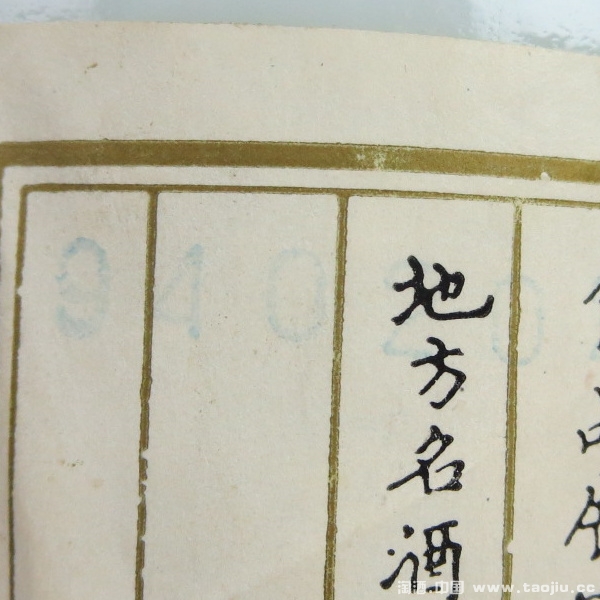 地方名酒
940202
淘酒·中国 www.taojiu.cc